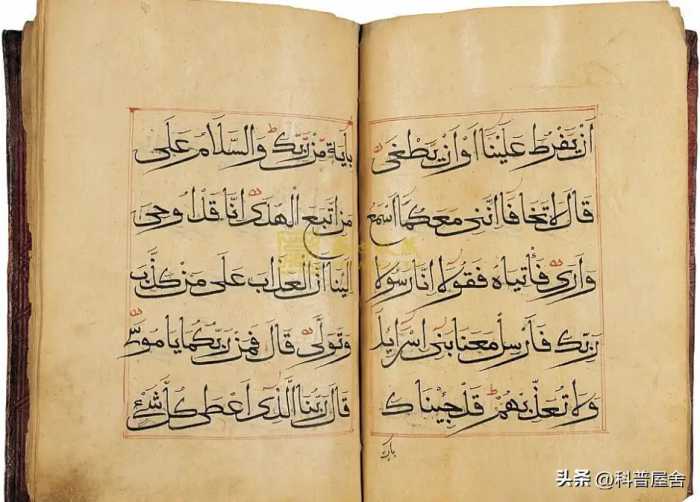 اَنْ يَفْرُطَ عَلَيْنَا اَوْ اَنْ يَطْغٰى
قَالَ لَا تَخَافَا اِنَّنِى مَعَكُمَا اَسْمَعُ
وَاَرٰى فَأْتِيَاهُ فَقُولَا اِنَّا رَسُولَا
رَبِّكَ فَاَرْسِلْ مَعَنَا بَنِى اِسْرَايِلَ
وَلَا تُعَذِّبْهُمْ قَدْ جِئْنَاكَ
بِايَةٍ مِنْ رَبِّكَ وَالسَّلَامُ عَلٰى
مَنِ اتَّبَعَ الْهُدٰى اِنَّا قَدْ اُوحِىَ
اِلَيْنَا اَنَّ الْعَذَابَ عَلٰى مَنْ كَذَّبَ
وَتَوَلّٰى قَالَ فَمَنْ رَبُّكُمَا يَا مُوسٰى
قَالَ رَبُّنَا الَّذِى اَعْطٰى كُلَّ شَىْءٍ
头条 @科普屋舍